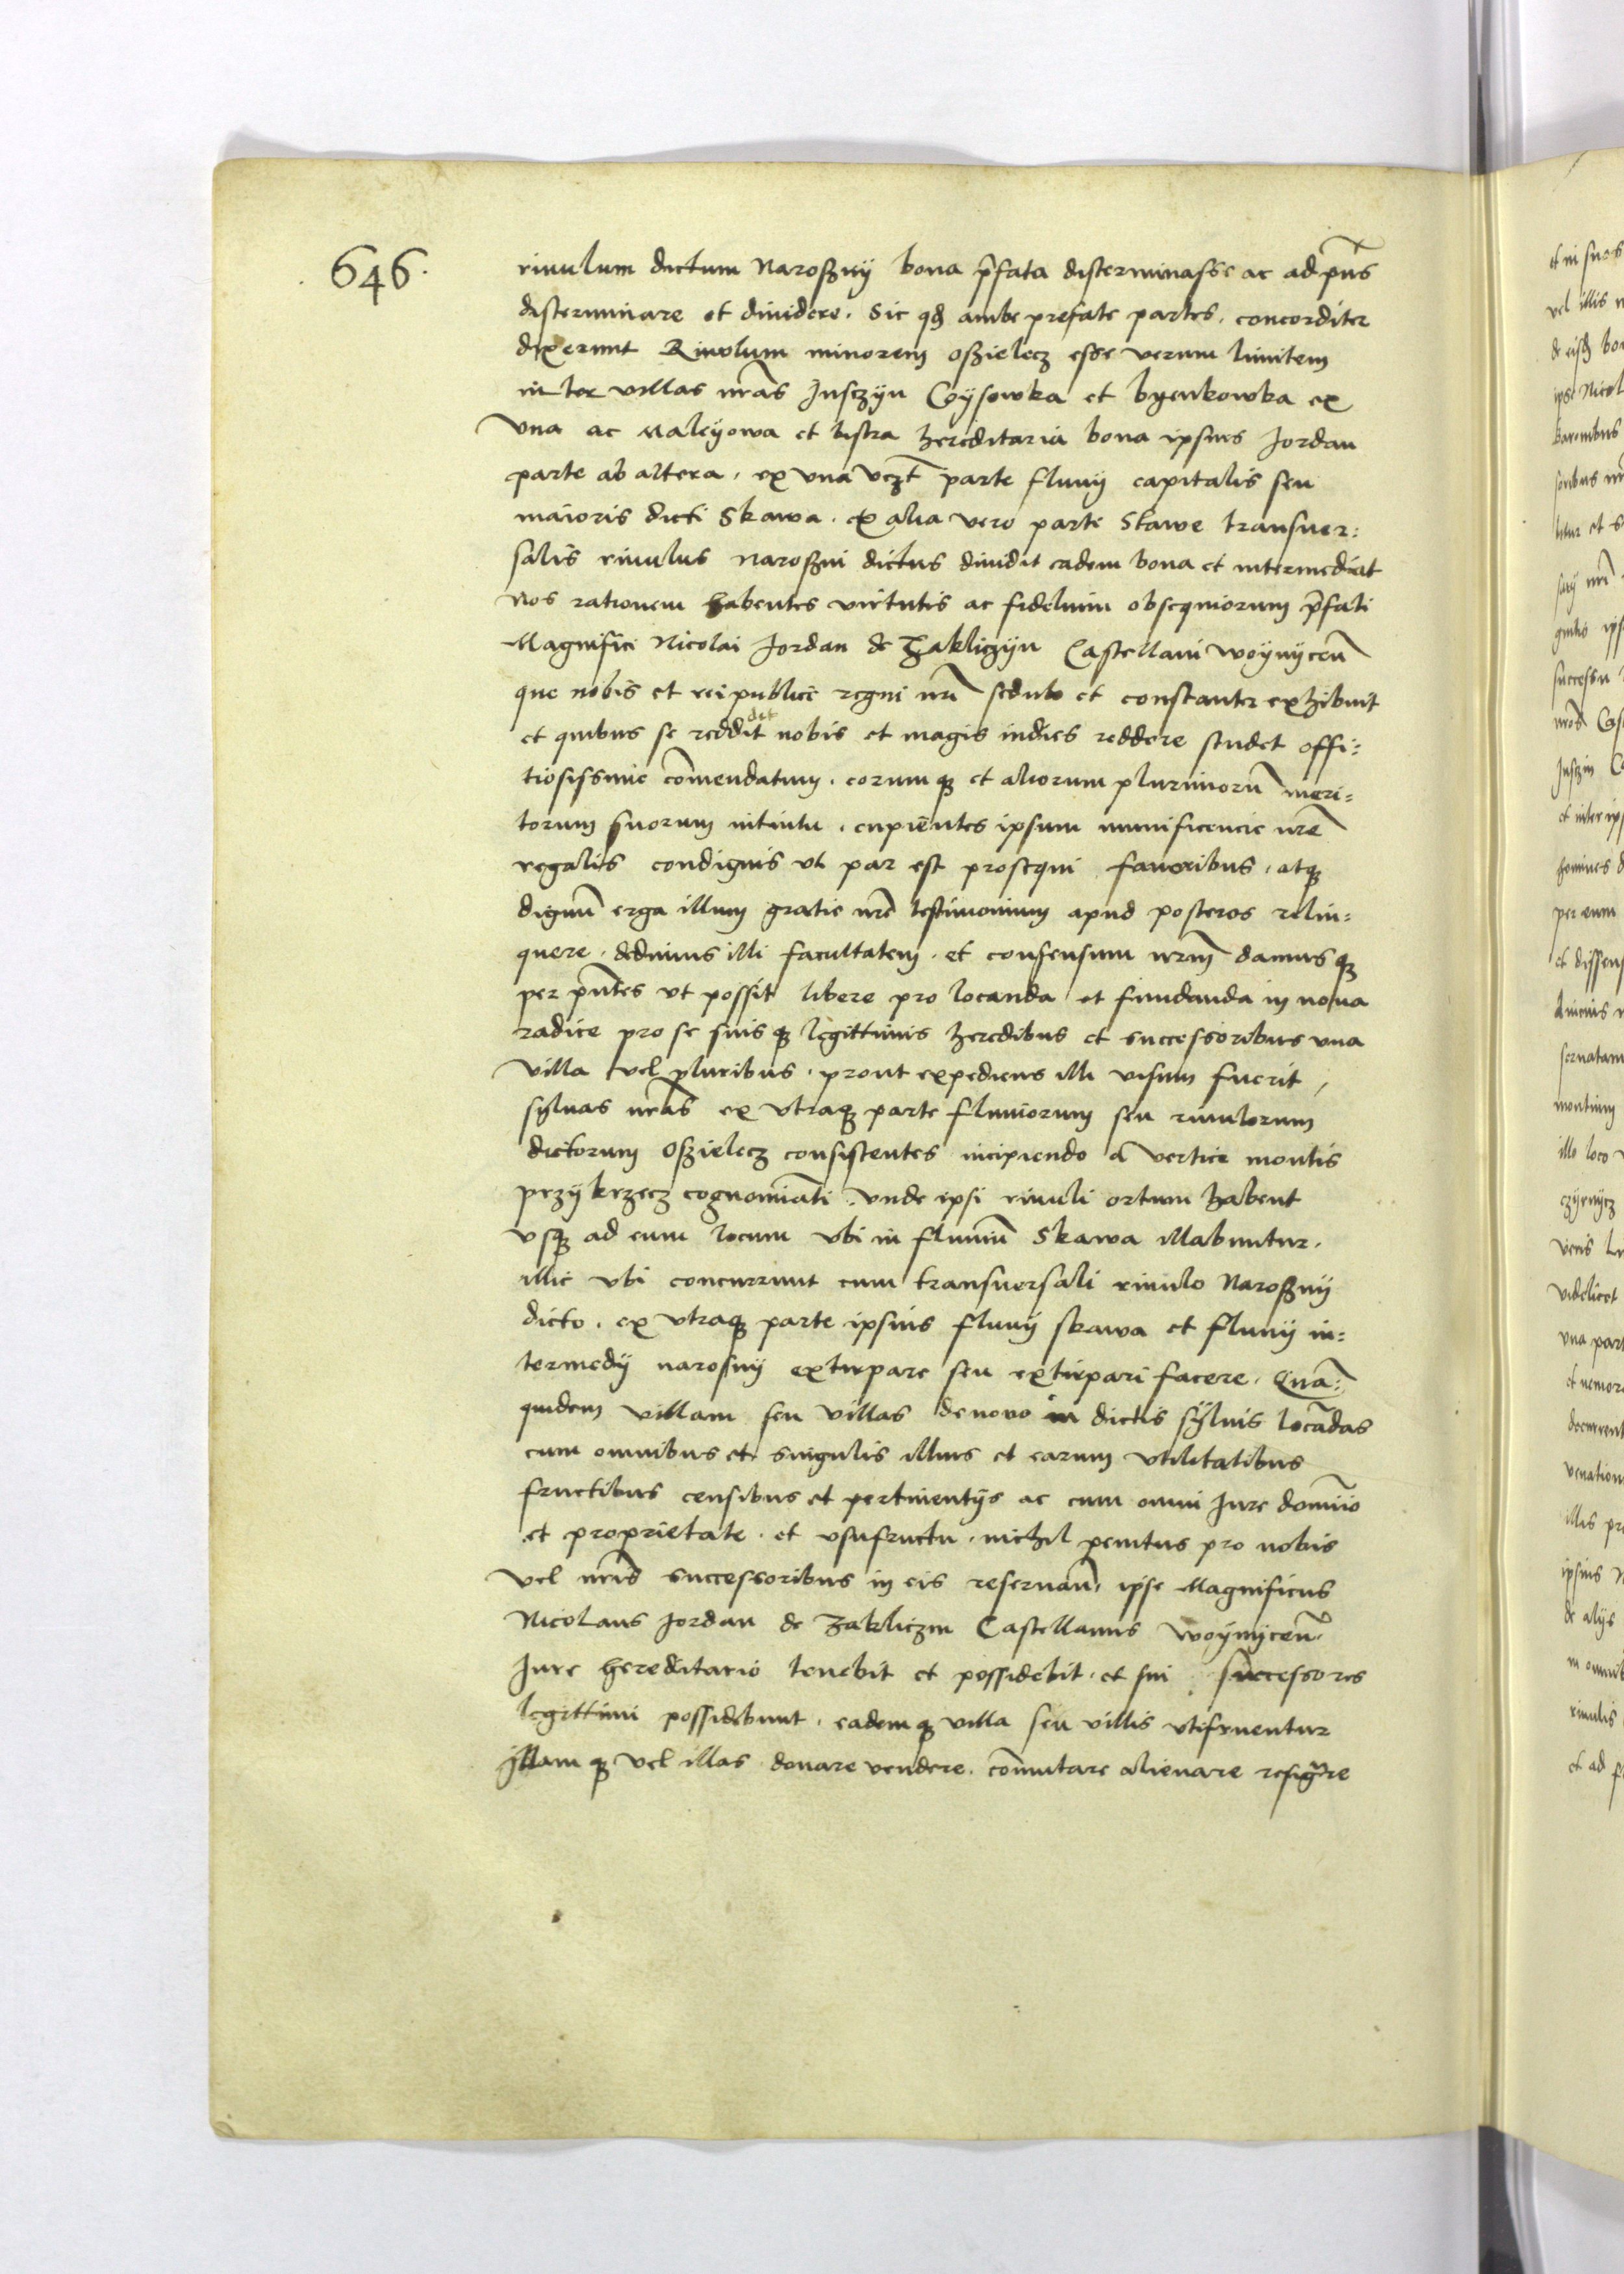 646.
riuulum dictum Naroßny bona p̄fata disterminasse ac ad pn̄s
disterminare et diuidere. Sic qđ ambe prefate partes. concorditer
dixerunt Riuulum minorem oßielecz esse verum limitem
inter villas nr̄as Jusczyn Cysowka et byenkowka ex
vna ac Maleyowa et bistra hereditaria bona ipsius Jordan
parte ab altera. ex vna vczt̄ parte fluuij capitalis seu
maioris dicti Skawa. ex alia vero parte Skawe transuer:
salis riuulus naroßni dictus diuidit eadem bona et intermediat
Nos rationem habentes virtutis ac fidelium obsequiorum p̄fati
Magnifici Nicolai Jordan de Zakliczyn Castellani woynyceñ
que nobis et reipublice regni nr̄i sedulo et constanter exhibuit
et quibus se reddit nobis et magis indies reddere studet offi:
det
tiosissime com̄endatum. eorumqȝ et aliorum plurimorū meri:
torum suorum intuitu. cupientes ipsum munificencie nr̄e
regalis condignis vt par est prosequi fauoribus. atqȝ
dignū erga illum gratie nr̄e testimonium apud posteros relin:
quere. dedimus illi facultatem. et consensum nr̄m damusqȝ
per pn̄tes vt possit libere pro locanda et fundanda in noua
radice pro se suisqȝ legittimis heredibus et successoribus vna
villa vel pluribus. prout expediens illi visum fuerit,
syluas nr̄as ex vtraqȝ parte fluuiorum seu riuulorum
dictorum Oßielecz consistentes incipiendo a vertice montis
przykrzecz cognomīati. vnde ipsi riuuli ortum habent
vsqȝ ad eum locum vbi in fluuiū Skawa illabuntur.
illic vbi concurrunt cum transuersali riuulo Naroßny
dicto. ex vtraqȝ parte ipsius fluuij skawa et fluuij in:
termedij narosny extirpare seu extirpari facere. Quā:
quidem villam seu villas denouo in dictis syluis locādas
cum omnibus et singulis illius et earum vtilitatibus
fructibus censibus et pertinentijs ac cum omni Jure domīio
et proprietate. et vsufructu. nichil penitus pro nobis
vel nr̄is successoribus in eis reseruañ. ipse Magnificus
Nicolaus Jordan de Zakliczin Castellanus woynyceñ.
Jure hereditario tenebit et possidebit. et sui successores
legittimi possidebunt. eademqȝ villa seu villis vtifruentur
illamqȝ vel illas donare vendere. com̄utare alienare resigāre